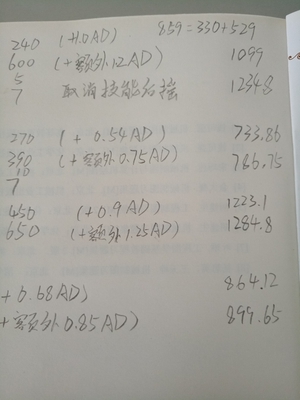 859=330+529
240 (+1.0AD)
600 (+额外1.2AD) 1099
5
7 取消技能后摇 1234.8
270 (+0.54AD) 733.86
390 (+额外0.75AD) 786.75
10
7
450 (+0.9AD) 1223.1
650 (+额外1.25AD) 1284.8
+0.68AD) 864.12
+额外0.85AD) 899.65